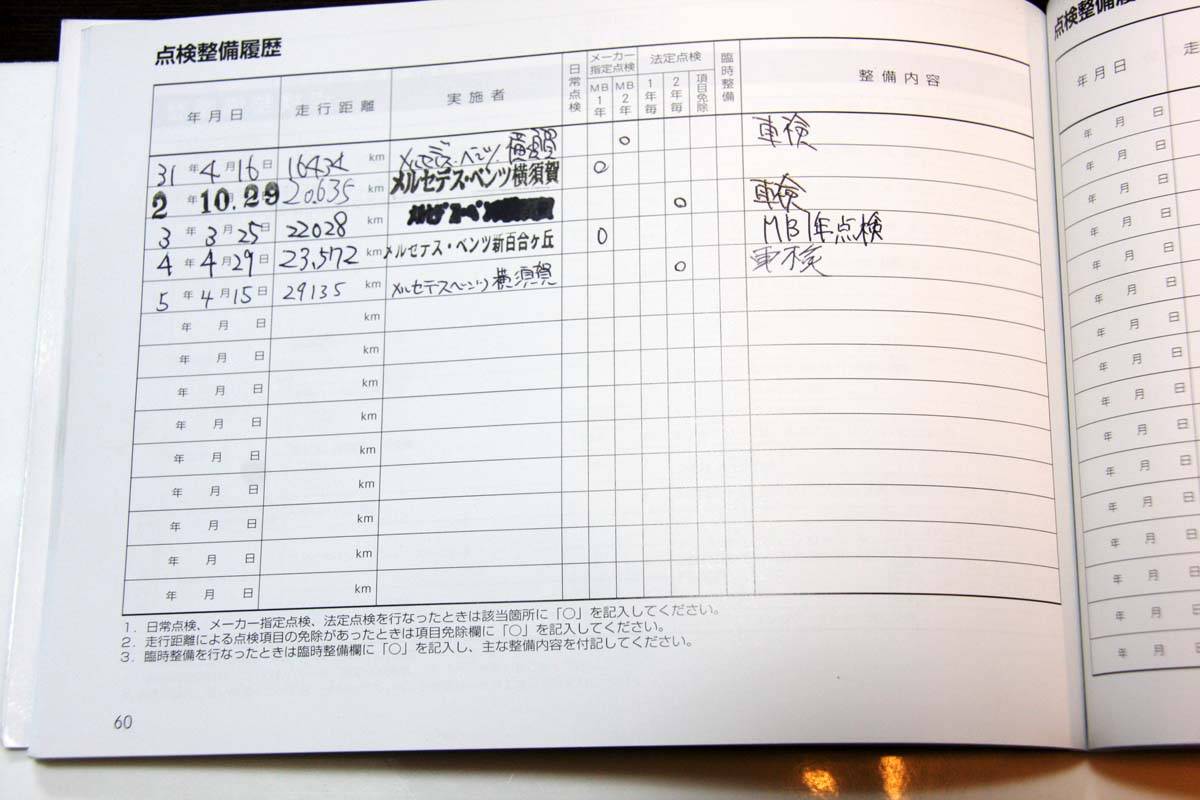 点検整備履歴
年月日 走行距離 実施者 日常点検 メーカー指定点検 MB1年 MB2年 法定点検 1年毎 2年毎 項目免除 臨時整備 整備内容
31年4月16日 16434 km メルセデス・ベンツ 横須賀 ○ 車検
2年10.29 20,635 km メルセデス・ベンツ横須賀 ○
3年3月25日 22028 km ○ 車検
4年4月29日 23,572 km メルセデス・ベンツ新百合ヶ丘 ○ MB1年点検
5年4月15日 29135 km メルセデスベンツ 横須賀 ○ 車検
年 月 日 km
年 月 日 km
年 月 日 km
年 月 日 km
年 月 日 km
年 月 日 km
年 月 日 km
年 月 日 km
年 月 日 km
1. 日常点検、メーカー指定点検、法定点検を行なったときは該当箇所に「○」を記入してください。
2. 走行距離による点検項目の免除があったときは項目免除欄に「○」を記入してください。
3. 臨時整備を行なったときは臨時整備欄に「○」を記入し、主な整備内容を付記してください。
60
点検整備
年月日 走
年 月 日
年 月 日
年 月 日
年 月 日
年 月 日
年 月 日
年 月 日
年 月 日
年 月 日
年 月 日
年 月 日
年 月 日
年 月 日
年 月 日
年 月 日